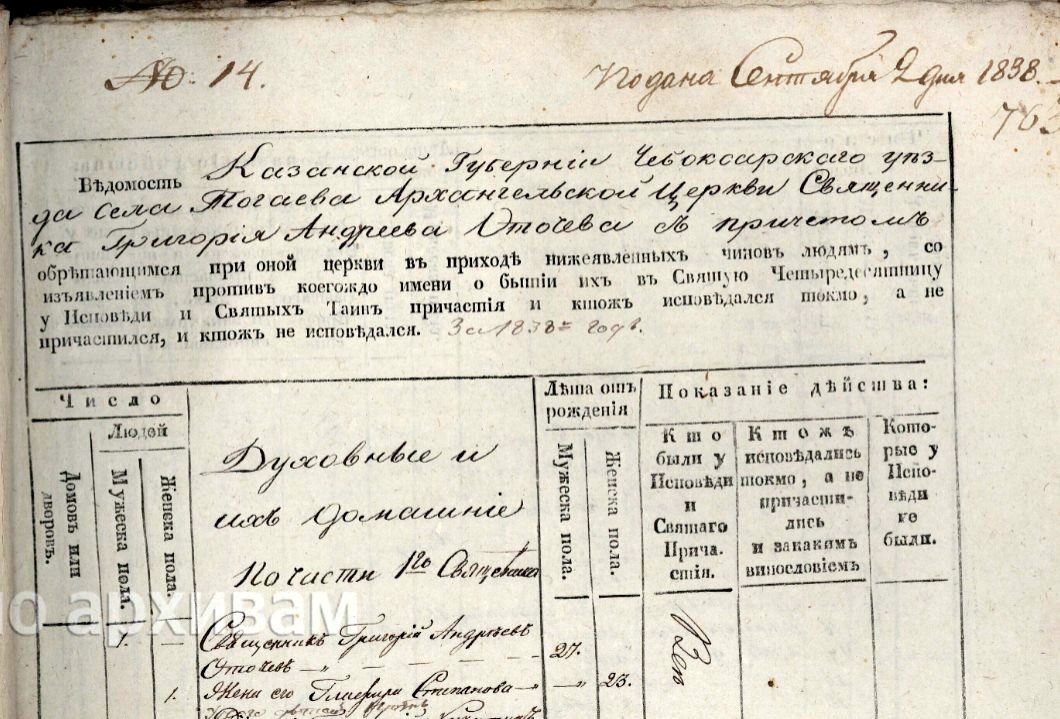 № 14.
Подана Сентября 2 дня 1838.
763
Вѣдомость Казанской Губерніи Чебоксарскаго уѣз-
да села Тогаева Архангельской Церкви Священни-
ка Григорія Андреева Оточева съ причтомъ
обрѣтающимся при оной церкви въ приходѣ нижеявленныхъ чиновъ людямъ, со
изъявленіемъ противъ коегождо имени о бытіи ихъ въ Святую Четыредесятницу
у Исповѣди и Святыхъ Таинъ причастія и ктожъ исповѣдался токмо, а не
причастился, и ктожъ не исповѣдался. За 1838й годъ.
Число
Людей
Домовъ или дворовъ.
Мужеска пола.
Женска пола.
Духовные и
ихъ домашніе
По части 1го Священника
Лѣта отъ
рожденія
Мужеска пола.
Женска пола.
Показаніе дѣйства:
Кто
были у
Исповѣди
и
Святаго
Прича-
стія.
Ктожъ
исповѣдались
токмо, а не
причасти-
лись
и закакимъ
винословіемъ
Кото-
рые у
Испо-
вѣди
не
были.
по архивам
1. — Священникъ Григорій Андреевъ 27.
Оточевъ
1. Жена его Глафира Степанова 23.